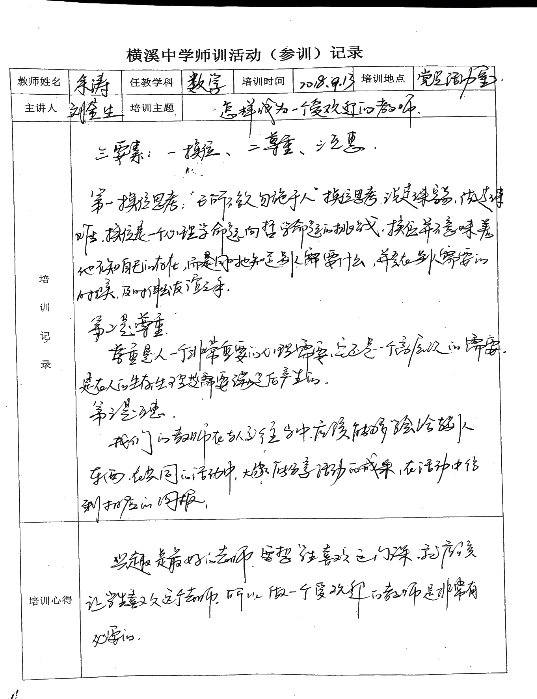 横溪中学师训活动（参训）记录
教师姓名 朱涛 任教学科 数学 培训时间 2018.9.13 培训地点 党员活动室
主讲人 刘金生 培训主题 怎样成为一个受欢迎的教师
三要素：一换位、二尊重、三互惠
第一换位思考："己所不欲勿施于人"换位思考，说起来容易，做起来
难，换位是一个心理学命题向哲学命题的挑战，换位并不意味着
他不知自己的存在，而是同时也知道别人需要什么，并在别人需要的
时候，及时伸出友谊之手。
第二是尊重
尊重是人一个非常重要的心理需要，它还是一个高层次的需要，
是在人的生存生理等需要满足后产生的。
第三是互惠
我们的教师在与人交往当中，应该能够学会给别人
东西，在共同的活动中，大家应分享活动的成果，在活动中得
到相应的回报。
培训记录
兴趣是最好的老师，要想学生喜欢这门课，就应该
培训心得 让学生喜欢这个老师，所以做一个受欢迎的教师是非常有
必要的。